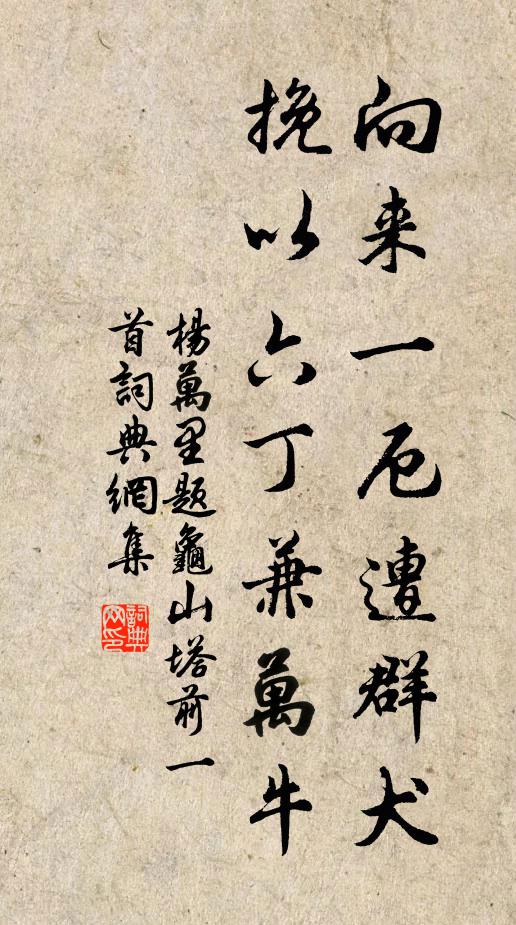 向来一厄遭群犬
挽以六丁兼萬牛
楊萬里题龜山塔前一
首詞典網集
詞典
网印